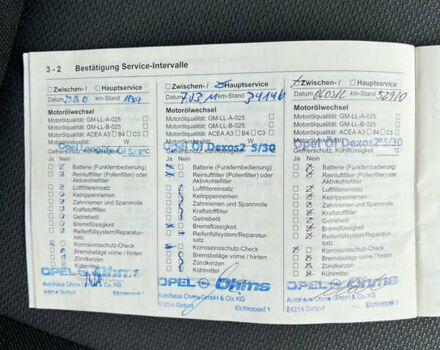 3 - 2 Bestätigung Service-Intervalle
Zwischen- / Hauptservice
Datum km-Stand
Motorölwechsel
Motorölqualität: GM-LL-A-025
Motorölqualität: GM-LL-B-025
Motorölqualität: ACEA A3 B4 C3
W
Ja Nein
Batterie (Funkfernbedienung)
Reinluftfilter (Pollenfilter) oder
Aktivkohlefilter
Luftfiltereinsatz
Keilrippenriemen
Zahnriemen und Spannrolle
Kraftstofffilter
Getriebeöl
Bremsflüssigkeit
Reifenfüllsystem/Reparatur-
satz
Korrosionsschutz-Check
Bremsbeläge vorne / hinten
Zündkerzen
Kühlmittel
OPEL Ohms
Autohaus Ohms GmbH & Co. KG
24214 Gettorf Eichkoppel 1
Zwischen- / Hauptservice
Datum km-Stand 34146
Motorölwechsel
Motorölqualität: GM-LL-A-025
Motorölqualität: GM-LL-B-025
Motorölqualität: ACEA A3 B4 C3
Opel Öl Dexos2 5/30
Ja Nein
Batterie (Funkfernbedienung)
Reinluftfilter (Pollenfilter) oder
Aktivkohlefilter
Luftfiltereinsatz
Keilrippenriemen
Zahnriemen und Spannrolle
Kraftstofffilter
Getriebeöl
Bremsflüssigkeit
Reifenfüllsystem/Reparatur-
satz
Korrosionsschutz-Check
Bremsbeläge vorne / hinten
Zündkerzen
Kühlmittel
OPEL Ohms
Autohaus Ohms GmbH & Co. KG
24214 Gettorf Eichkoppel 1
Zwischen- / Hauptservice
Datum km-Stand 52910
Motorölwechsel
Motorölqualität: GM-LL-A-025
Motorölqualität: GM-LL-B-025
Motorölqualität: ACEA A3 B4 C3
Opel Öl Dexos2 5/30
Ja Nein
Batterie (Funkfernbedienung)
Reinluftfilter (Pollenfilter) oder
Aktivkohlefilter
Luftfiltereinsatz
Keilrippenriemen
Zahnriemen und Spannrolle
Kraftstofffilter
Getriebeöl
Bremsflüssigkeit
Reifenfüllsystem/Reparatur-
satz
Korrosionsschutz-Check
Bremsbeläge vorne / hinten
Zündkerzen
Kühlmittel
OPEL Ohms
Autohaus Ohms GmbH & Co. KG
24214 Gettorf Eichkoppel 1